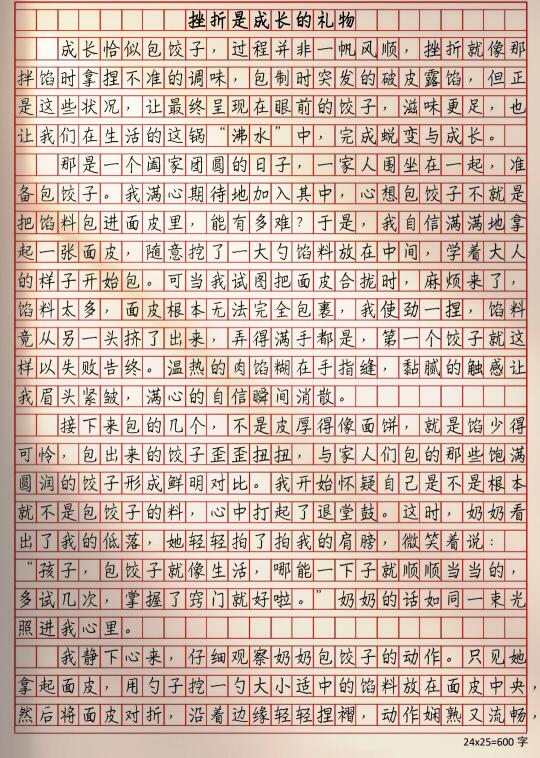 挫折是成长的礼物
成长恰似包饺子，过程并非一帆风顺，挫折就像那
拌馅时拿捏不准的调味，包制时突发的破皮露馅，但正
是这些状况，让最终呈现在眼前的饺子，滋味更足，也
让我们在生活的这锅“沸水”中，完成蜕变与成长。
那是一个阖家团圆的日子，一家人围坐在一起，准
备包饺子。我满心期待地加入其中，心想包饺子不就是
把馅料包进面皮里，能有多难？于是，我自信满满地拿
起一张面皮，随意挖了一大勺馅料放在中间，学着大人
的样子开始包。可当我试图把面皮合拢时，麻烦来了，
馅料太多，面皮根本无法完全包裹，我使劲一捏，馅料
竟从另一头挤了出来，弄得满手都是，第一个饺子就这
样以失败告终。温热的肉馅糊在手指缝，黏腻的触感让
我眉头紧皱，满心的自信瞬间消散。
接下来包的几个，不是皮厚得像面饼，就是馅少得
可怜，包出来的饺子歪歪扭扭，与家人们包的那些饱满
圆润的饺子形成鲜明对比。我开始怀疑自己是不是根本
就不是包饺子的料，心中打起了退堂鼓。这时，奶奶看
出了我的低落，她轻轻拍了拍我的肩膀，微笑着说：
“孩子，包饺子就像生活，哪能一下子就顺顺当当的，
多试几次，掌握了窍门就好啦。”奶奶的话如同一束光
照进我心里。
我静下心来，仔细观察奶奶包饺子的动作。只见她
拿起面皮，用勺子挖一勺大小适中的馅料放在面皮中央，
然后将面皮对折，沿着边缘轻轻捏褶，动作娴熟又流畅，
24x25=600 字